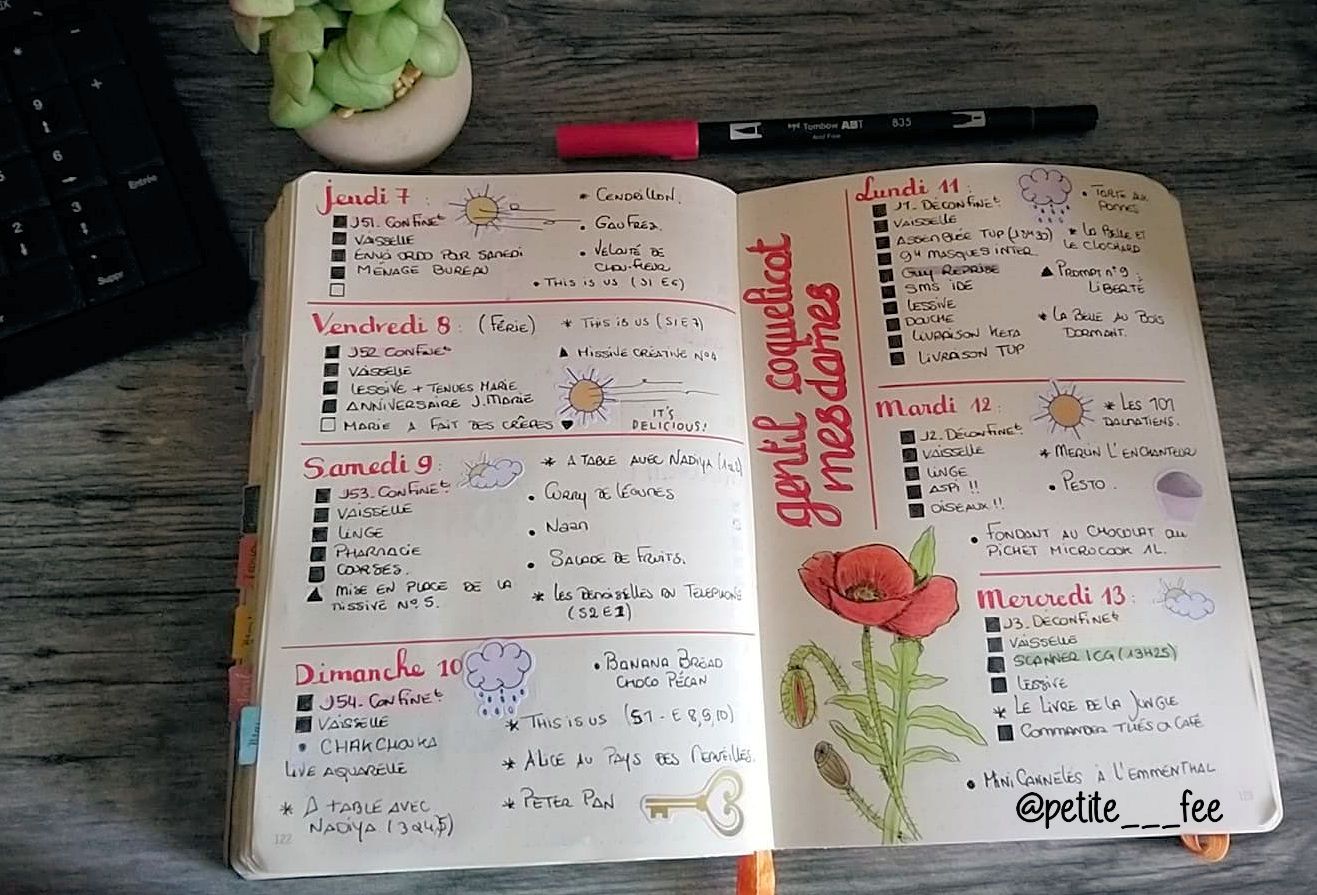 Jeudi 7 :
J51. CONFINEt
VAISSELLE
ENVOI ORDO POUR SAMEDI
MÉNAGE BUREAU
* CENDRILLON.
• GAUFRES.
• VELOUTÉ DE
CHOU-FLEUR
• THIS IS US (S1 E6)
Vendredi 8 : (FÉRIÉ)
J52 CONFINEt
VAISSELLE
LESSIVE + TENUES MARIE
ANNIVERSAIRE J.MARIE
MARIE A FAIT DES CRÊPES ♥
* THIS IS US (S1 E7)
▲ MISSIVE CRÉATIVE N°4
IT'S
DELICIOUS!
Samedi 9 :
J53. CONFINEt
VAISSELLE
LINGE
PHARMACIE
COURSES.
▲ MISE EN PLACE DE LA
MISSIVE N°5.
* A TABLE AVEC NADIYA
• CURRY DE LÉGUMES
• NAAN
• SALADE DE FRUITS.
* LES DEMOISELLES DU TELEPHONE
(S2E1)
Dimanche 10
J54. CONFINEt
VAISSELLE
• CHAKCHOUKA
LIVE AQUARELLE
* A TABLE AVEC
NADIYA
• BANANA BREAD
CHOCO PÉCAN
* THIS IS US (S1 - E 8,9,10)
* ALICE AU PAYS DES MERVEILLES.
* PETER PAN
122
gentil coquelicot
mesdames
Lundi 11 :
J1. DÉCONFINEt
VAISSELLE
ASSEMBLÉE TUP
94 MASQUES INTER
GUY REPRISE
SMS IDE
LESSIVE
DOUCHE
LIVRAISON
LIVRAISON TUP
• TARTE AUX
POMMES
* LA BELLE ET
LE CLOCHARD
▲ PROMPT N°9 :
LIBERTÉ
* LA BELLE AU BOIS
DORMANT.
Mardi 12 :
J2. DÉCONFINEt
VAISSELLE
LINGE
ASPI !!
OISEAUX !!
* LES 101
DALMATIENS.
* MERLIN L'ENCHANTEUR
• PESTO.
• FONDANT AU CHOCOLAT au
PICHET MICROCOOK 1L.
Mercredi 13 :
J3. DÉCONFINEt
VAISSELLE
SCANNER ICG (13H25)
LESSIVE
* LE LIVRE DE LA JUNGLE
COMMANDER THÉS & CAFÉ
• MINI CANNELÉS À L'EMMENTHAL
123
@petite___fee
Tombow ABT 835
9
6
3
2
Entrée
Suppr